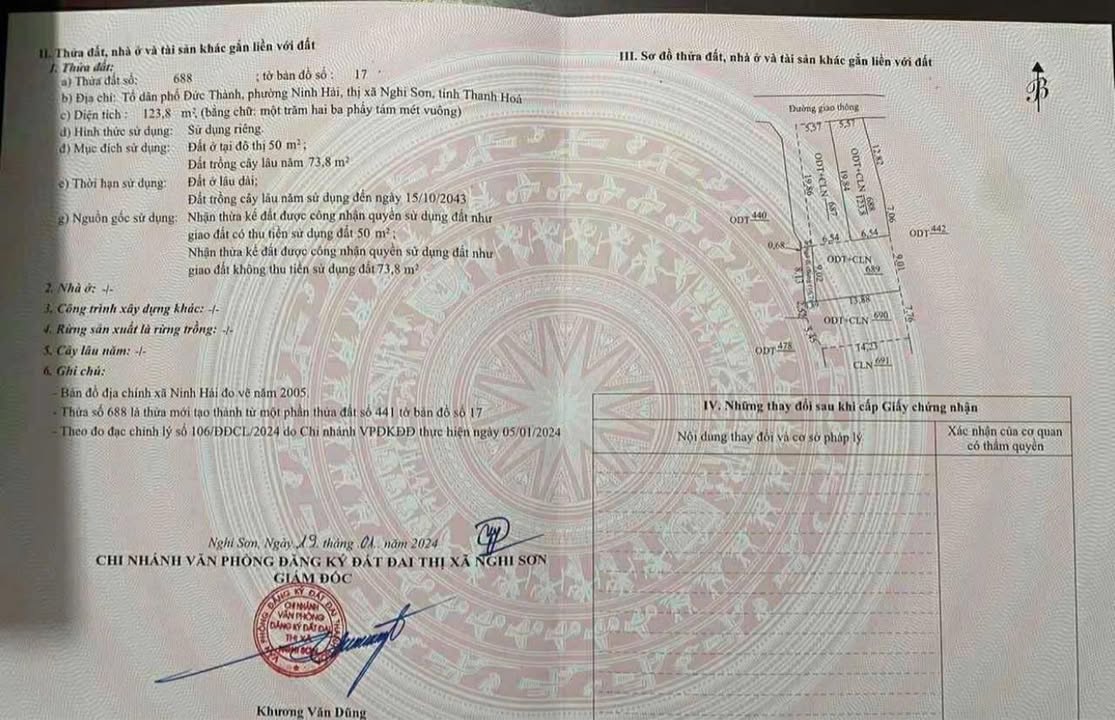 II. Thửa đất, nhà ở và tài sản khác gắn liền với đất
1. Thửa đất:
a) Thửa đất số: 688 ; tờ bản đồ số : 17
b) Địa chỉ: Tổ dân phố Đức Thành, phường Ninh Hải, thị xã Nghi Sơn, tỉnh Thanh Hoá
c) Diện tích : 123,8 m², (bằng chữ: một trăm hai ba phẩy tám mét vuông)
d) Hình thức sử dụng: Sử dụng riêng.
đ) Mục đích sử dụng: Đất ở tại đô thị 50 m² ;
Đất trồng cây lâu năm 73,8 m²
e) Thời hạn sử dụng: Đất ở lâu dài;
Đất trồng cây lâu năm sử dụng đến ngày 15/10/2043
g) Nguồn gốc sử dụng: Nhận thừa kế đất được công nhận quyền sử dụng đất như
giao đất có thu tiền sử dụng đất 50 m² ;
Nhận thừa kế đất được công nhận quyền sử dụng đất như
giao đất không thu tiền sử dụng đất 73,8 m²
2. Nhà ở: -/-
3. Công trình xây dựng khác: -/-
4. Rừng sản xuất là rừng trồng: -/-
5. Cây lâu năm: -/-
6. Ghi chú:
- Bản đồ địa chính xã Ninh Hải đo vẽ năm 2005.
- Thửa số 688 là thửa mới tạo thành từ một phần thửa đất số 441 tờ bản đồ số 17
- Theo đo đạc chỉnh lý số 106/ĐĐCL/2024 do Chi nhánh VPĐKĐĐ thực hiện ngày 05/01/2024
Nghi Sơn, Ngày 19 tháng 01 năm 2024
CHI NHÁNH VĂN PHÒNG ĐĂNG KÝ ĐẤT ĐAI THỊ XÃ NGHI SƠN
GIÁM ĐỐC
CHI NHÁNH
VĂN PHÒNG
ĐĂNG KÝ ĐẤT ĐAI
THỊ XÃ
NGHI SƠN
Khương Văn Dũng
III. Sơ đồ thửa đất, nhà ở và tài sản khác gắn liền với đất
B
Đường giao thông
5,57 5,57
12,82
ODT+CLN 687
19,86
19,84
ODT+CLN 688
7,06
ODT 440
ODT 442
6,54 6,54
0,68
ODT+CLN 689
9,02
9,01
8,13
13,88
ODT+CLN 690
7,76
ODT 478
14,23
CLN 691
IV. Những thay đổi sau khi cấp Giấy chứng nhận
Nội dung thay đổi và cơ sở pháp lý
Xác nhận của cơ quan
có thẩm quyền